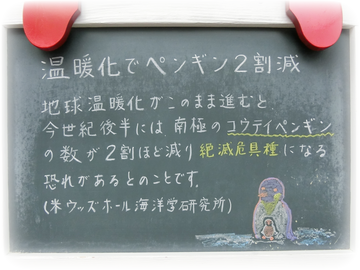 温暖化でペンギン2割減
地球温暖化がこのまま進むと、
今世紀後半には南極のコウテイペンギン
の数が2割ほど減り絶滅危具種になる
恐れがあるとのことです。
(米ウッズホール海洋学研究所)